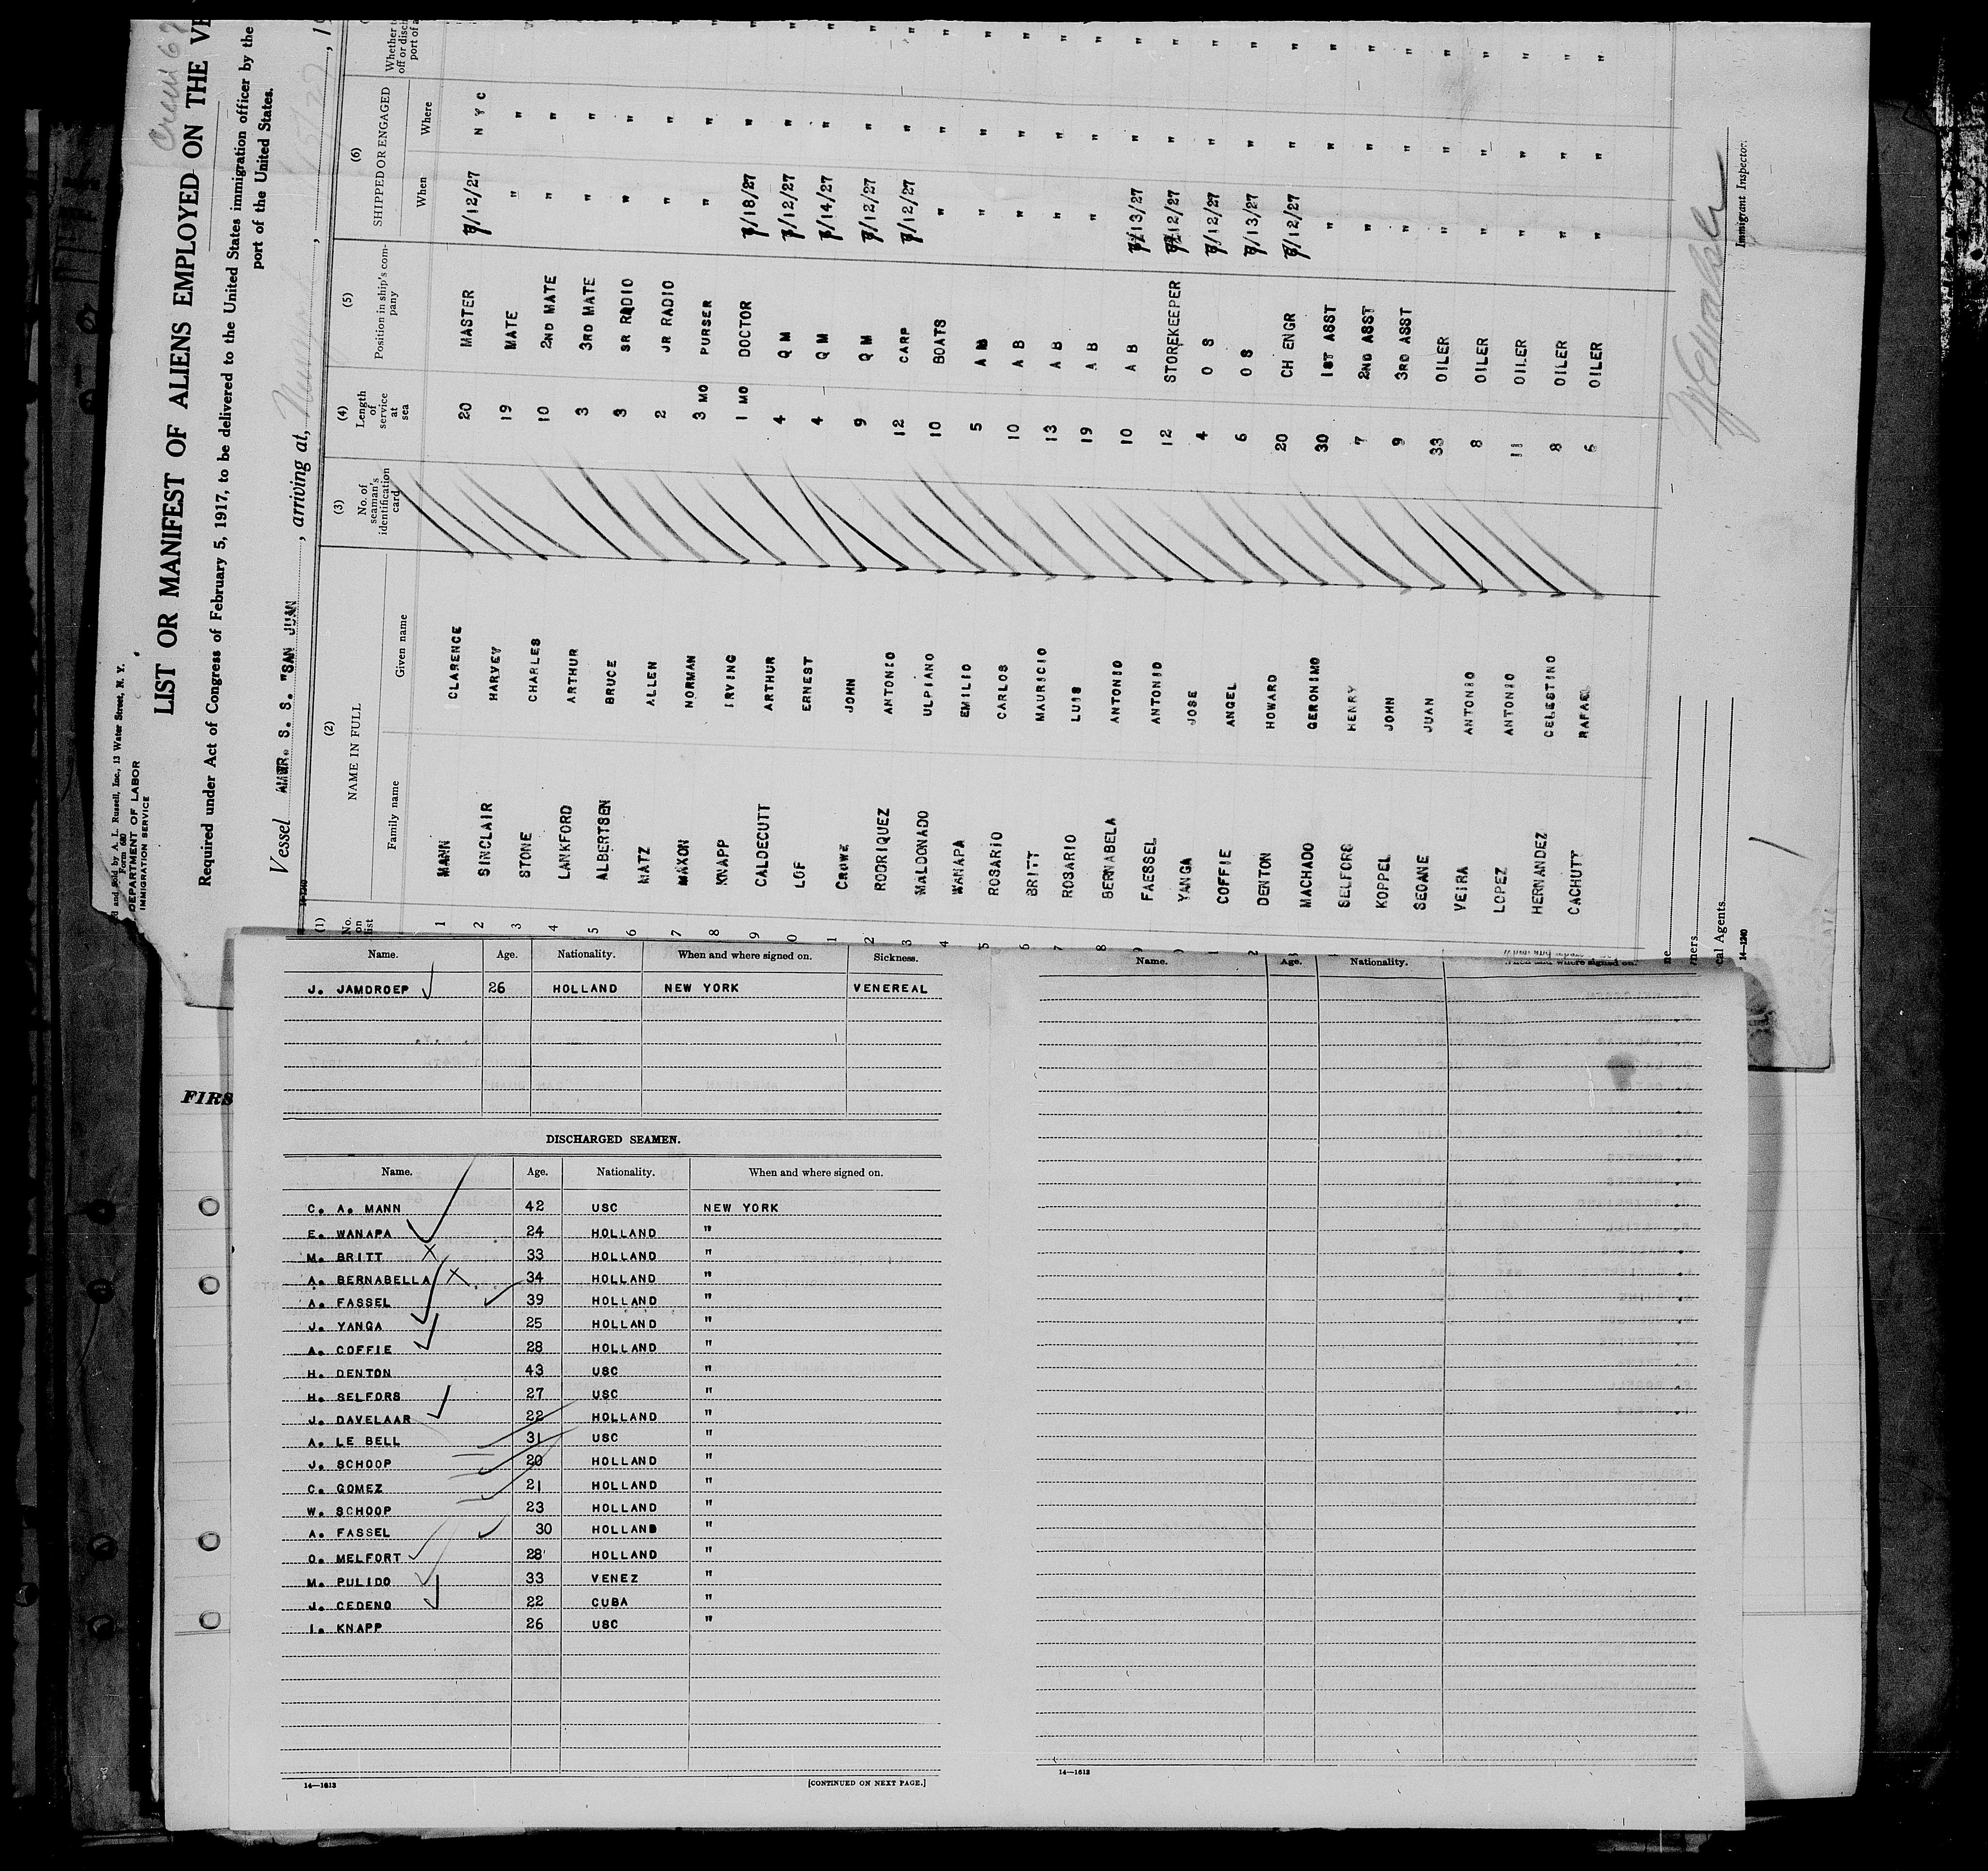 LIST OR MANIFEST OF ALIENS EMPLOYED ON THE
Required under Act of Congress of February 5, 1917, to be delivered to the United States immigration officer by the
port of the United States.
sold by A. L. Russell, Inc., 13 Water Street, N. Y.
Form 680
DEPARTMENT OF LABOR
IMMIGRATION SERVICE
Vessel AMER. S. S. "SAN JUAN , arriving at,
(1) (2) (3) (4) (5) (6)
No. on list NAME IN FULL No. of seaman's identification card Length of service at sea Position in ship's company SHIPPED OR ENGAGED
Family name Given name When Where
1 MANN CLARENCE 20 MASTER 7/12/27 N Y C "
2 SINCLAIR HARVEY 19 MATE " " "
3 STONE CHARLES 10 2ND MATE " " "
4 LANKFORD ARTHUR 3 3RD MATE " " "
5 ALBERTSEN BRUCE 3 SR RADIO " " "
6 MATZ ALLEN 2 JR RADIO " " "
7 MAXON NORMAN 3 MO PURSER " " "
8 KNAPP IRVING 1 MO DOCTOR 7/18/27 " "
9 CALDECUTT ARTHUR 4 Q M 7/12/27 " "
0 LOF ERNEST 4 Q M 7/14/27 " "
1 CROWE JOHN 9 Q M 7/12/27 " "
2 RODRIQUEZ ANTONIO 12 CARP 7/12/27 " "
3 MALDONADO ULPIANO 10 BOATS " " "
4 WANAPA EMILIO 5 A B " " "
5 ROSARIO CARLOS 10 A B " " "
6 BRITT MAURICIO 13 A B " " "
7 ROSARIO LUIS 19 A B " " "
8 BERNABELA ANTONIO 10 A B 7/13/27 " "
9 FAESSEL ANTONIO 12 STOREKEEPER 7/12/27 " "
YANGA JOSE 4 O S 7/12/27 " "
1 COFFIE ANGEL 6 O S 7/13/27 " "
2 DENTON HOWARD 20 CH ENGR 7/12/27 " "
MACHADO GERONIMO 30 1ST ASST " " "
SELFORS HENRY 7 2ND ASST " " "
KOPPEL JOHN 9 3RD ASST " " "
SEOANE JUAN 33 OILER " " "
VEIRA ANTONIO 8 OILER " " "
LOPEZ ANTONIO 11 OILER " " "
HERNANDEZ CELESTINO 8 OILER " " "
CACHUTT RAFAEL 6 OILER " " "
Immigrant Inspector.
cal Agents.
14-1240
FIRS
Name. Age. Nationality. When and where signed on. Sickness.
J. JAMDROEP 26 HOLLAND NEW YORK VENEREAL
DISCHARGED SEAMEN.
Name. Age. Nationality. When and where signed on.
C. A. MANN 42 USC NEW YORK
E. WANAPA 24 HOLLAND "
M. BRITT 33 HOLLAND "
A. BERNABELLA 34 HOLLAND "
A. FASSEL 39 HOLLAND "
J. YANGA 25 HOLLAND "
A. COFFIE 28 HOLLAND "
H. DENTON 43 USC "
H. SELFORS 27 USC "
J. DAVELAAR 22 HOLLAND "
A. LE BELL 31 USC "
J. SCHOOP 20 HOLLAND "
C. GOMEZ 21 HOLLAND "
W. SCHOOP 23 HOLLAND "
A. FASSEL 30 HOLLAND "
O. MELFORT 28 HOLLAND "
M. PULIDO 33 VENEZ "
J. CEDENO 22 CUBA "
I. KNAPP 26 USC "
14—1613 [CONTINUED ON NEXT PAGE.]
Name. Age. Nationality. When and where signed on.
14—1613